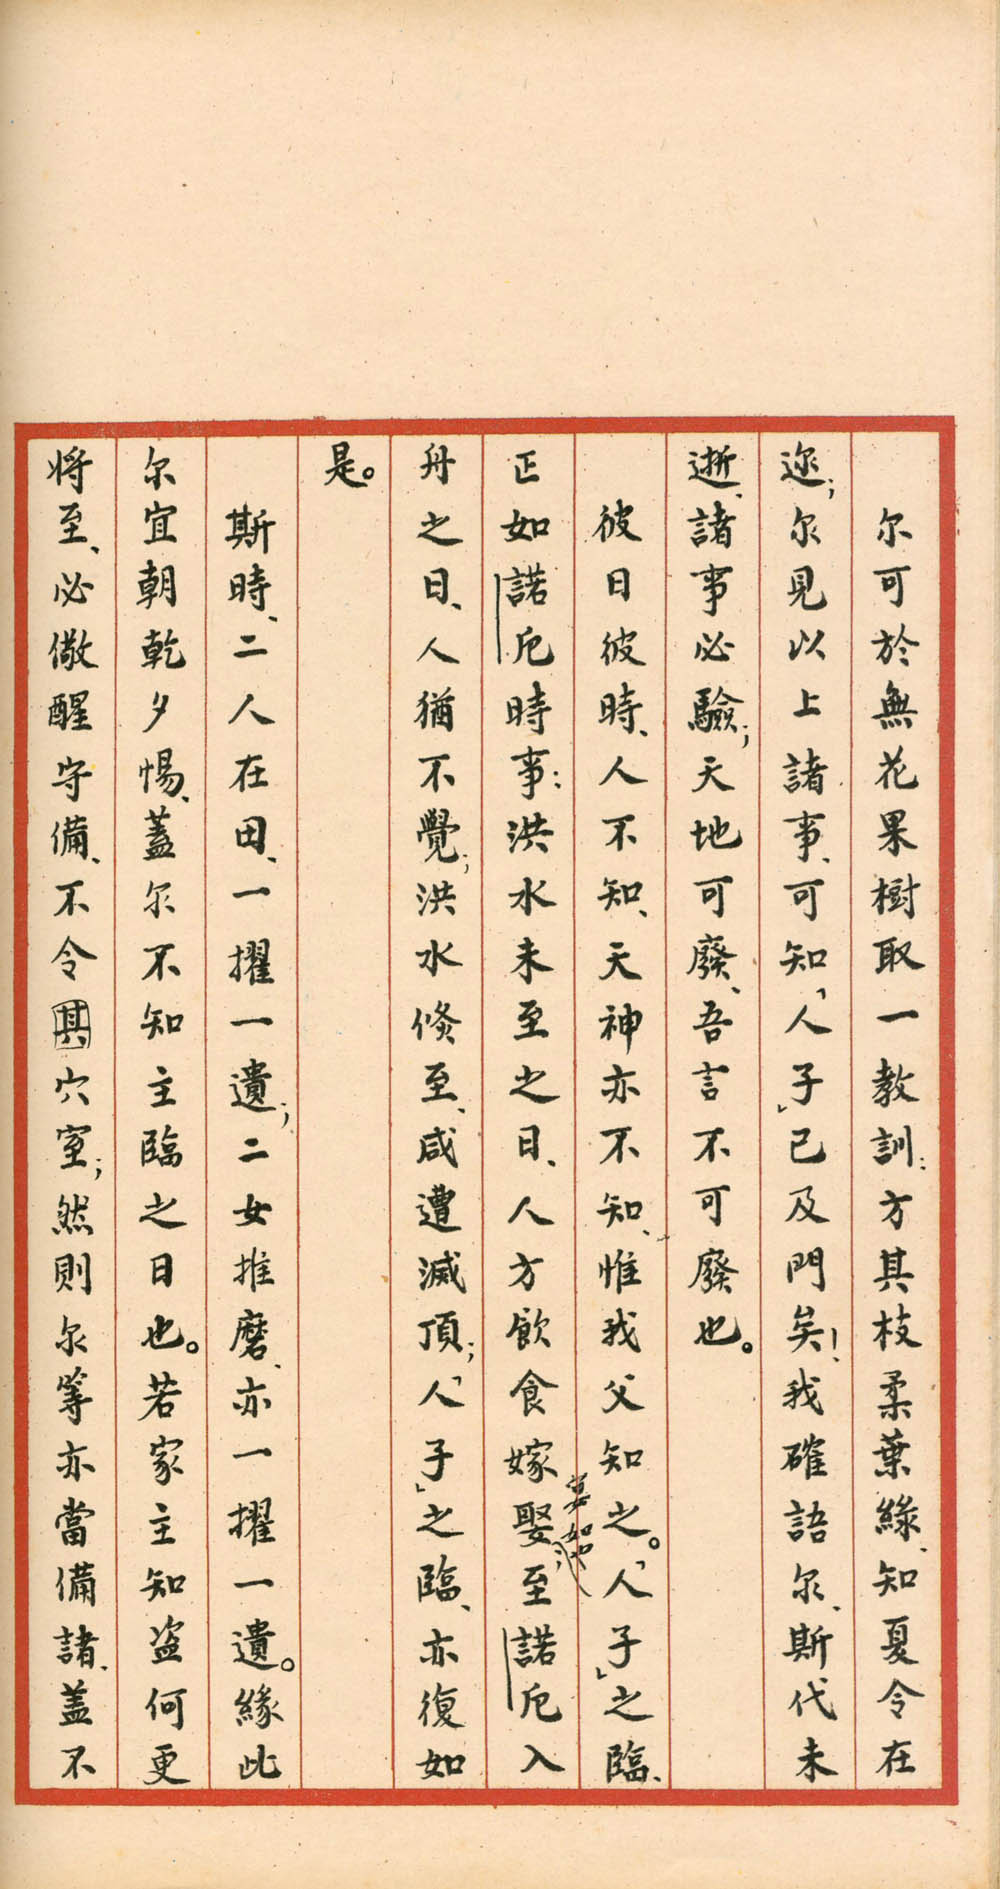 尔可於無花果樹取一教訓:方其枝柔葉緣、知夏令在
邇;尔見以上諸事、可知「人子」已及門矣!、我確語尔、斯代未
逝、諸事必驗;天地可廢、吾言不可廢也。
彼日彼時、人不知、天神亦不知、惟我父知之。「人子」之臨、
正如諾厄時事:洪水未至之日、人方飲食嫁娶;至諾厄入
舟之日、人猶不覺;洪水倏至、咸遭滅頂;「人子」之臨、亦復如
是。
斯時、二人在田、一擢一遺;二女推磨、亦一擢一遺。緣此
尔宜朝乾夕惕、蓋尔不知主臨之日也。若家主知盜何更
將至、必儆醒守備、不令其穴室;然則尔等亦當備諸、盖不